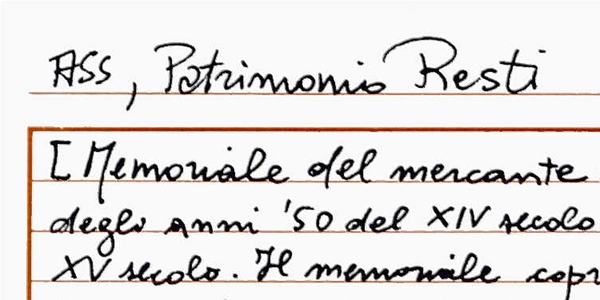 ASS, Patrimonio Resti
[Memoriale del mercante
degli anni '50 del XIV secolo
XV secolo. Il memoriale copr